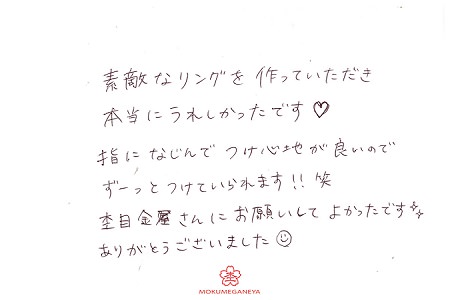 素敵なリングを作っていただき
本当にうれしかったです♡
指になじんでつけ心地が良いので
ずーっとつけていられます!!笑
杢目金屋さんにお願いしてよかったです
ありがとうございました☺
MOKUMEGANEYA